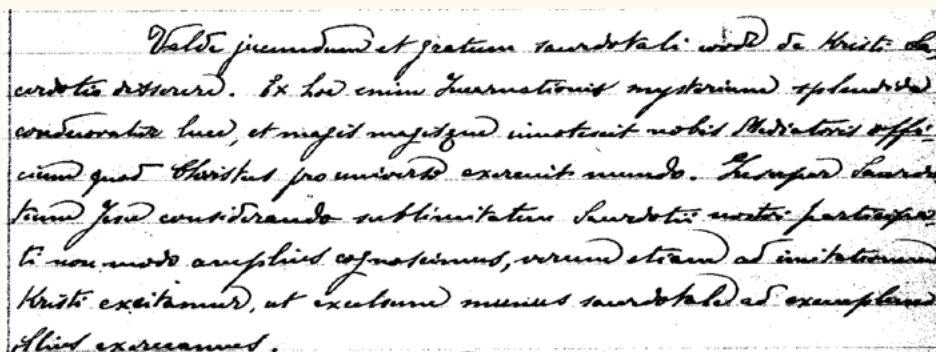 Valde jucundum et gratum sacerdotali cordi de Kristi Sa-
cerdotio disserere. Ex hoc enim Incarnationis mysterium splendida
condecoratur luce, et magis magisque innotescit nobis Mediatoris offi-
cium quod Christus pro universo exercuit mundo. Insuper Sacerdo-
tium Jesu considerando sublimitatem Sacerdotii nostri participa-
ti non modo amplius cognoscimus, verum etiam ad imitationem
Kristi excitamur, ut excelsum munus sacerdotale ad exemplum
illius exerceamus.